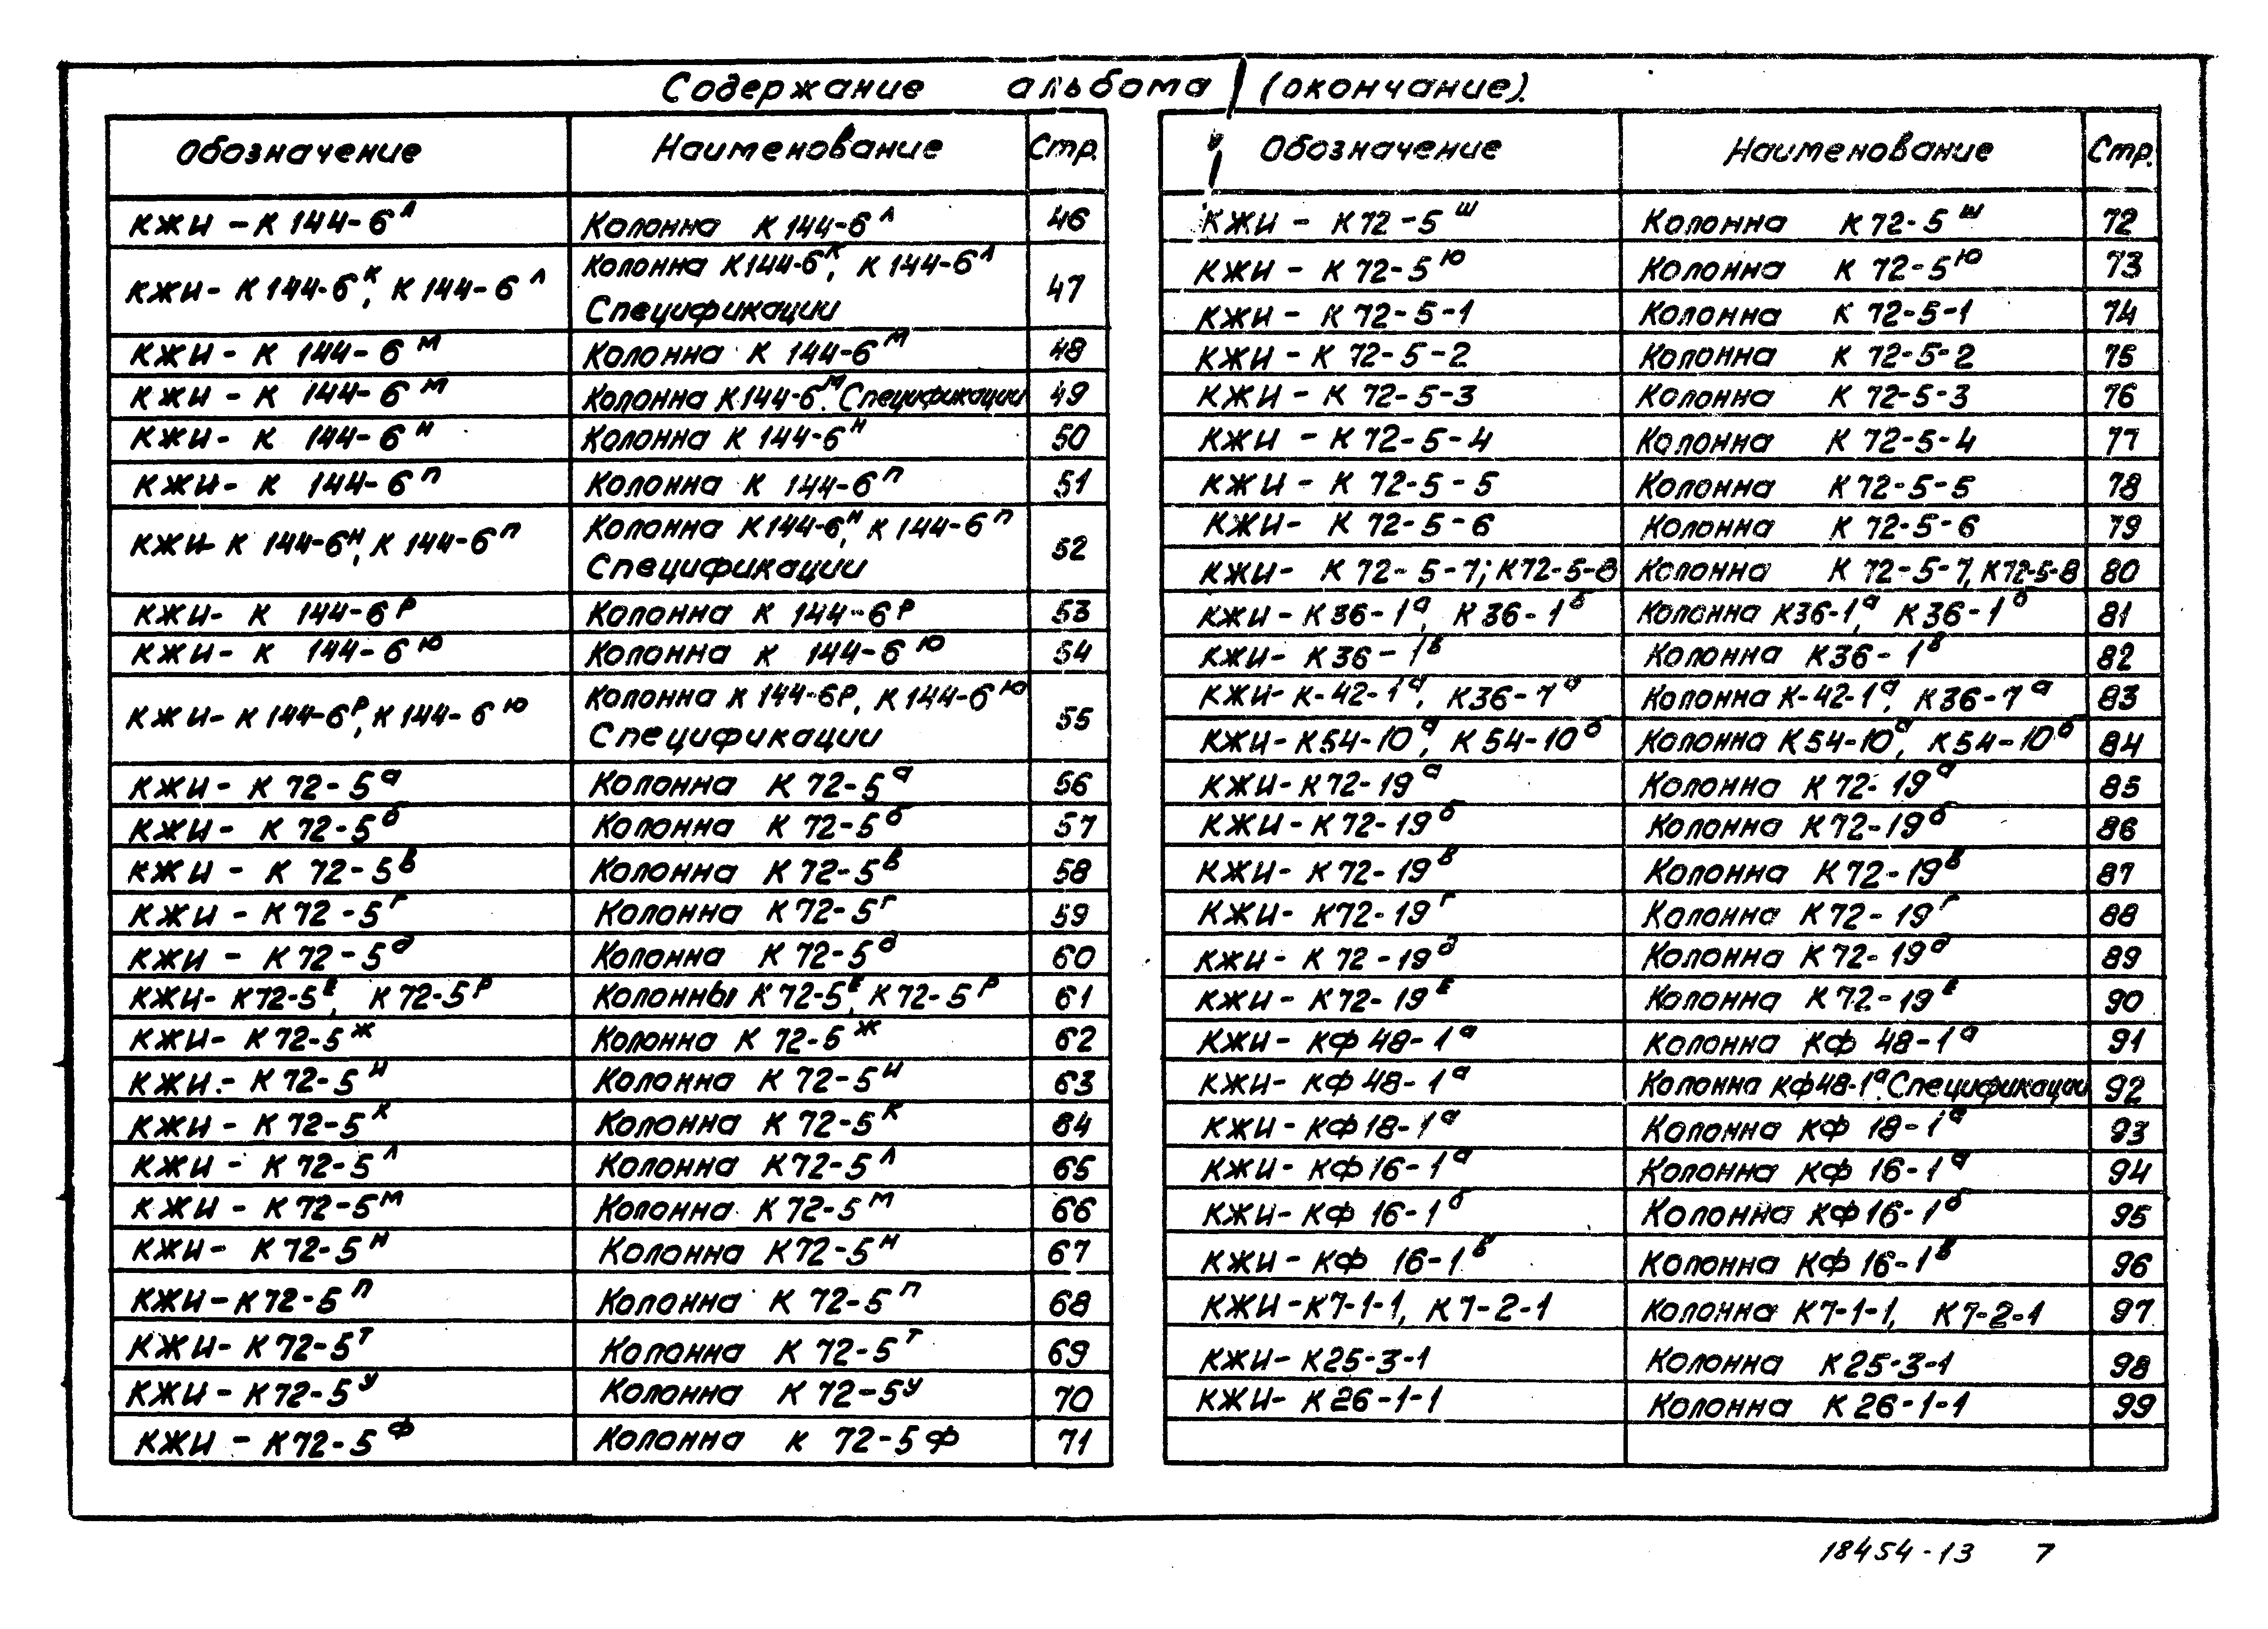 Содержание альбома (окончание).
Обозначение Наименование Стр.
КЖИ - К 144-6ᴧ Колонна К 144-6ᴧ 46
КЖИ - К 144-6ᴷ, К 144-6ᴧ Колонна К 144-6ᴷ, К 144-6ᴧ
Спецификации 47
КЖИ - К 144-6ᴹ Колонна К 144-6ᴹ 48
КЖИ - К 144-6ᴹ Колонна К 144-6ᴹ. Спецификации 49
КЖИ - К 144-6ᴴ Колонна К 144-6ᴴ 50
КЖИ - К 144-6ᴨ Колонна К 144-6ᴨ 51
КЖИ - К 144-6ᴴ, К 144-6ᴨ Колонна К 144-6ᴴ, К 144-6ᴨ
Спецификации 52
КЖИ - К 144-6ᴾ Колонна К 144-6ᴾ 53
КЖИ - К 144-6ю Колонна К 144-6ю 54
КЖИ - К 144-6ᴾ, К 144-6ю Колонна К 144-6Р, К 144-6ю
Спецификации 55
КЖИ - К 72-5ᵃ Колонна К 72-5ᵃ 56
КЖИ - К 72-5б Колонна К 72-5б 57
КЖИ - К 72-5в Колонна К 72-5в 58
КЖИ - К 72-5г Колонна К 72-5г 59
КЖИ - К 72-5д Колонна К 72-5д 60
КЖИ - К 72-5ᴱ, К 72-5ᴾ Колонны К 72-5ᴱ, К 72-5ᴾ 61
КЖИ - К 72-5ж Колонна К 72-5ж 62
КЖИ - К 72-5и Колонна К 72-5и 63
КЖИ - К 72-5ᴷ Колонна К 72-5ᴷ 64
КЖИ - К 72-5л Колонна К 72-5л 65
КЖИ - К 72-5ᴹ Колонна К 72-5ᴹ 66
КЖИ - К 72-5ᴴ Колонна К 72-5ᴴ 67
КЖИ - К 72-5п Колонна К 72-5п 68
КЖИ - К 72-5ᵀ Колонна К 72-5ᵀ 69
КЖИ - К 72-5у Колонна К 72-5у 70
КЖИ - К 72-5ф Колонна К 72-5ф 71
Обозначение Наименование Стр.
КЖИ - К 72-5ш Колонна К 72-5ш 72
КЖИ - К 72-5ю Колонна К 72-5ю 73
КЖИ - К 72-5-1 Колонна К 72-5-1 74
КЖИ - К 72-5-2 Колонна К 72-5-2 75
КЖИ - К 72-5-3 Колонна К 72-5-3 76
КЖИ - К 72-5-4 Колонна К 72-5-4 77
КЖИ - К 72-5-5 Колонна К 72-5-5 78
КЖИ - К 72-5-6 Колонна К 72-5-6 79
КЖИ - К 72-5-7; К 72-5-8 Колонна К 72-5-7, К 72-5-8 80
КЖИ - К 36-1ᵃ, К 36-1б Колонна К 36-1ᵃ, К 36-1б 81
КЖИ - К 36-1в Колонна К 36-1в 82
КЖИ - К-42-1ᵃ, К 36-7ᵃ Колонна К-42-1ᵃ, К 36-7ᵃ 83
КЖИ - К 54-10ᵃ, К 54-10б Колонна К 54-10ᵃ, К 54-10б 84
КЖИ - К 72-19ᵃ Колонна К 72-19ᵃ 85
КЖИ - К 72-19б Колонна К 72-19б 86
КЖИ - К 72-19в Колонна К 72-19в 87
КЖИ - К 72-19г Колонна К 72-19г 88
КЖИ - К 72-19д Колонна К 72-19д 89
КЖИ - К 72-19ᴱ Колонна К 72-19ᴱ 90
КЖИ - КФ 48-1ᵃ Колонна КФ 48-1ᵃ 91
КЖИ - КФ 48-1ᵃ Колонна КФ 48-1ᵃ. Спецификации 92
КЖИ - КФ 18-1ᵃ Колонна КФ 18-1ᵃ 93
КЖИ - КФ 16-1ᵃ Колонна КФ 16-1ᵃ 94
КЖИ - КФ 16-1б Колонна КФ 16-1б 95
КЖИ - КФ 16-1в Колонна КФ 16-1в 96
КЖИ - К7-1-1, К7-2-1 Колонна К7-1-1, К7-2-1 97
КЖИ - К25-3-1 Колонна К25-3-1 98
КЖИ - К 26-1-1 Колонна К 26-1-1 99
18454-13 7